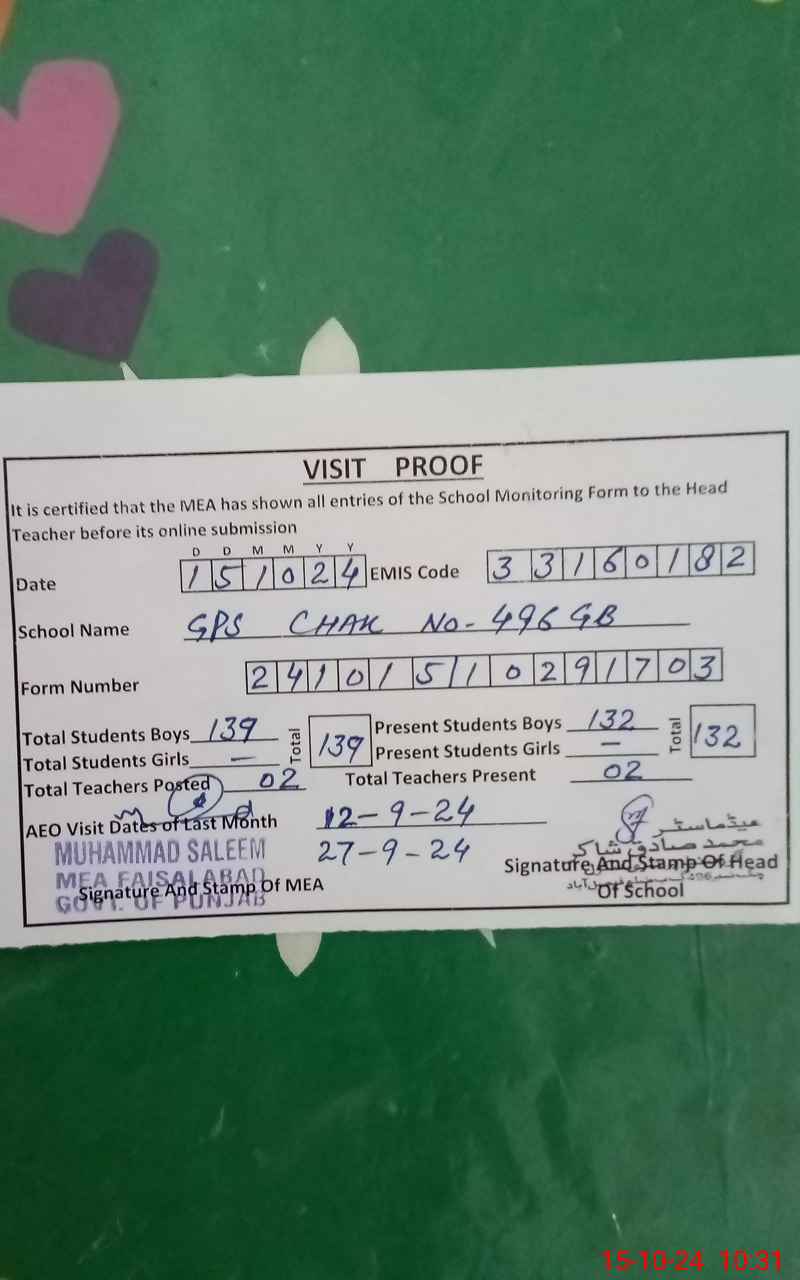 VISIT PROOF
It is certified that the MEA has shown all entries of the School Monitoring Form to the Head
Teacher before its online submission
D D M M Y Y
Date 1 5 1 0 2 4 EMIS Code 3 3 1 6 0 1 8 2
School Name GPS CHAK NO-496 GB
Form Number 2 4 1 0 1 5 1 0 2 9 1 7 0 3
Total Students Boys 139 Total 139 Present Students Boys 132 Total 132
Total Students Girls — Present Students Girls —
Total Teachers Posted 02 Total Teachers Present 02
AEO Visit Dates of Last Month 12-9-24
27-9-24
MUHAMMAD SALEEM
MEA FAISALABAD
GOVT. OF PUNJAB
Signature And Stamp Of MEA
ہیڈماسٹر
محمد صادق شاکر
Signature And Stamp Of Head
Of School
15-10-24 10:31